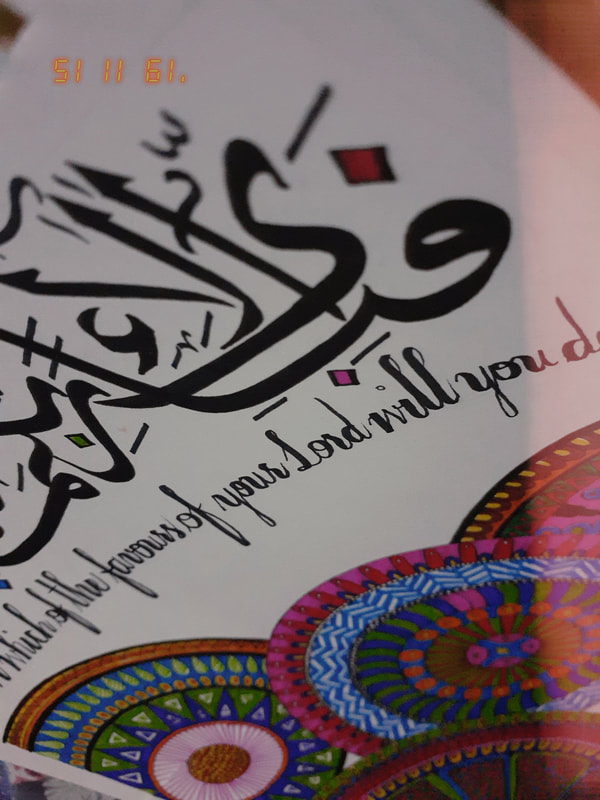 51 11 61.
فبأي آلاء ربكما
which of the favours of your Lord will you de